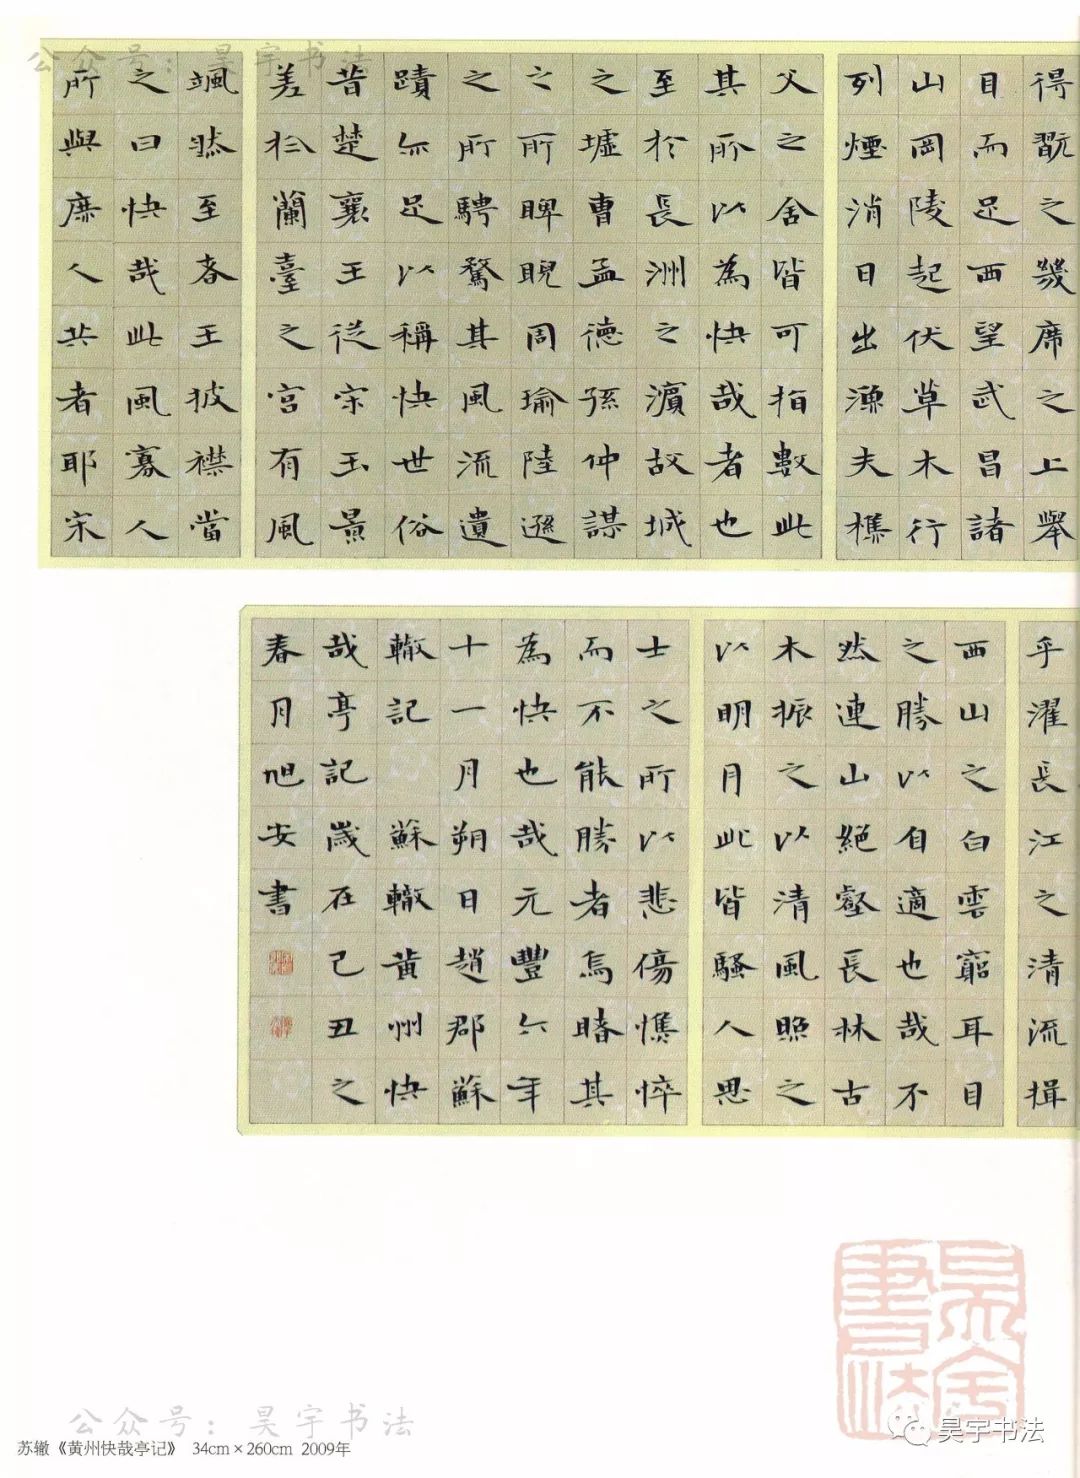 公众号：昊宇书法
得翫之几席之上舉
目而足西望武昌諸
山岡陵起伏草木行
列煙消日出漁夫樵
父之舍皆可指數此
其所以為快哉者也
至於長洲之濱故城
之墟曹孟德孫仲謀
之所睥睨周瑜陸遜
之所騁騖其風流遺
蹟亦足以稱快世俗
昔楚襄王從宋玉景
差於蘭臺之宮有風
颯然至者王披襟當
之曰快哉此風寡人
所與庶人共者耶宋
乎濯長江之清流揖
西山之白雲窮耳目
之勝以自適也哉不
然連山絕壑長林古
木振之以清風照之
以明月此皆騷人思
士之所以悲傷憔悴
而不能勝者烏睹其
為快也哉元豐六年
十一月朔日趙郡蘇
轍記 蘇轍黄州快
哉亭記歲在己丑之
春月旭安書
昊宇書法
公众号：昊宇书法
昊宇书法
苏辙《黄州快哉亭记》 34cm×260cm 2009年